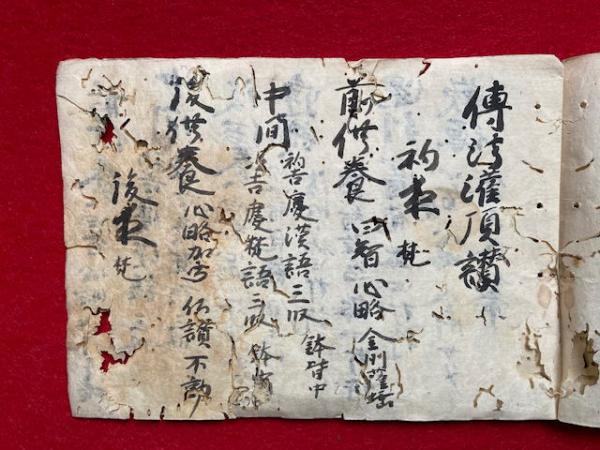 傳法灌頂讃
初夜 梵
前供養 四智 心略 金剛薩埵
中間 初吉慶漢語三段
次吉慶梵語三段 鉢
後供養 心略 佛讃 不動
後夜 梵